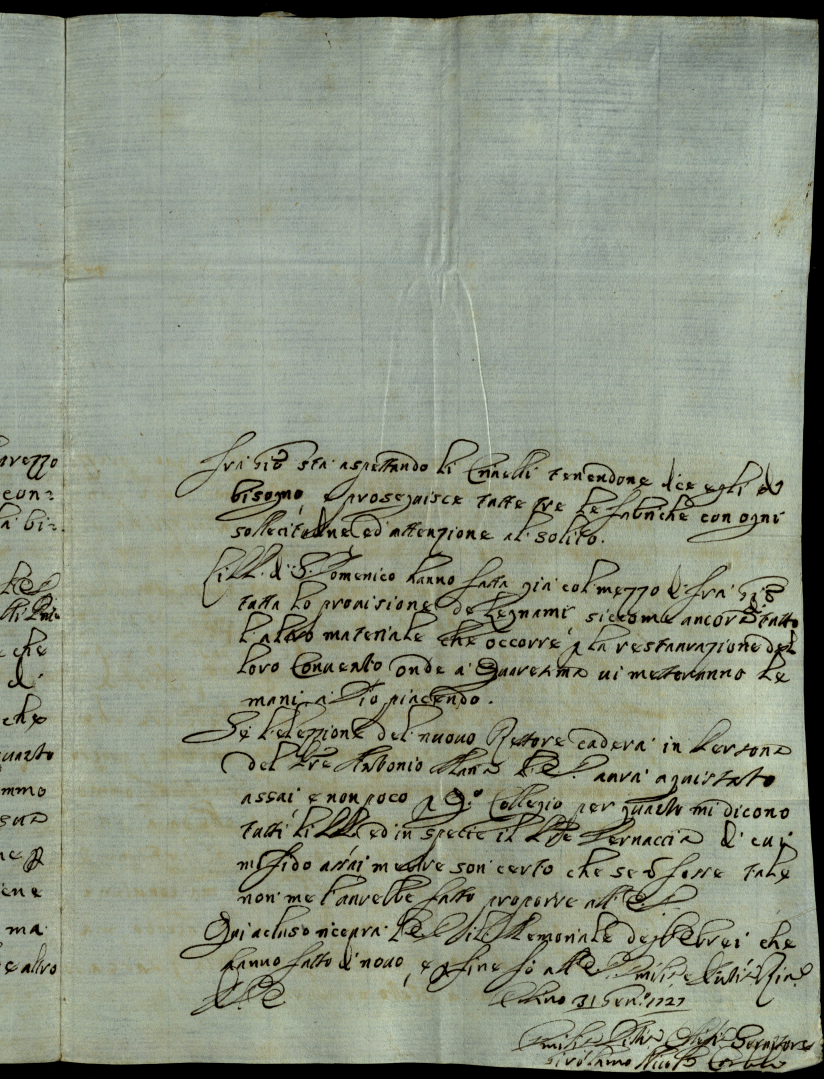 arezzo
con=
ha bi=
che
di
che
quanto
ammo
sua
ne p
iene
ma
e altro
Fra Gio sta aspettando li Cribelli tenendone dice egli di
bisogno, e proseguisce tutte tre le fabriche con ogni
sollecitudine ed attenzione al solito.
Li PP. di S. Domenico hanno fatta già col mezzo di fra Gio
tutta la provisione de Legnami siccome ancora di tutto
l'altro materiale che occorre p la restaurazione del
loro Convento onde a Quaresima vi metteranno le
mani a Dio piacendo.
Se l'elezzione del nuovo Rettore caderà in Persona
del Pre Antonio Maria aurà aquistato
assai e non poco p q.o Collegio per quanto mi dicono
tutti li PP. ed in specie il Pre Vernaccia di cui
mi fido assai mentre son certo che se n fosse tale
non me l'aurebbe fatto proporre all'
Qui acluso riceprà Memoriale degl'Ebrei che
hanno fatto di novo, e p fine fò all'
31 Gen.o 1727
Servitore
Girolamo Nicolò